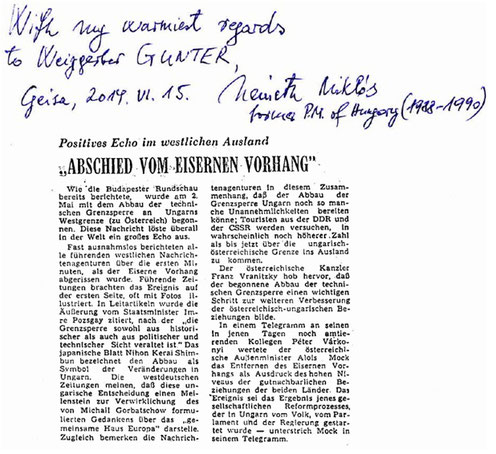 With my warmest regards
to Weißgerber GUNTER,
Geisa, 2014. VI. 15. Németh Miklós
former P.M. of Hungary (1988-1990)
Positives Echo im westlichen Ausland
„ABSCHIED VOM EISERNEN VORHANG"
Wie die Budapester Rundschau
bereits berichtete, wurde am 2.
Mai mit dem Abbau der techni-
schen Grenzsperre an Ungarns
Westgrenze (zu Österreich) begon-
nen. Diese Nachricht löste überall
in der Welt ein großes Echo aus.
Fast ausnahmslos berichteten al-
le führenden westlichen Nachrich-
tenagenturen über die ersten Mi-
nuten, als der Eiserne Vorhang
abgerissen wurde. Führende Zei-
tungen brachten das Ereignis auf
der ersten Seite, oft mit Fotos il-
lustriert. In Leitartikeln wurde die
Äußerung vom Staatsminister Im-
re Pozsgay zitiert, nach der „die
Grenzsperre sowohl aus histori-
scher als auch aus politischer und
technischer Sicht veraltet ist." Das
japanische Blatt Nihon Kerai Shim-
bun bezeichnet den Abbau als
Symbol der Veränderungen in
Ungarn. Die westdeutschen
Zeitungen meinen, daß diese un-
garische Entscheidung einen Mei-
lenstein zur Verwirklichung des
von Michail Gorbatschow formu-
lierten Gedankens über das „ge-
meinsame Haus Europa" darstelle.
Zugleich bemerken die Nachrich-
tenagenturen in diesem Zusam-
menhang, daß der Abbau der
Grenzsperre Ungarn noch so man-
che Unannehmlichkeiten bereiten
könne; Touristen aus der DDR und
der CSSR werden versuchen, in
wahrscheinlich noch höherer Zahl
als bis jetzt über die ungarisch-
österreichische Grenze ins Ausland
zu kommen.
Der österreichische Kanzler
Franz Vranitzky hob hervor, daß
der begonnene Abbau der techni-
schen Grenzsperre einen wichtigen
Schritt zur weiteren Verbesserung
der österreichisch-ungarischen Be-
ziehungen bilde.
In einem Telegramm an seinen
in jenen Tagen noch amtie-
renden Kollegen Péter Várko-
nyi wertete der österreichi-
sche Außenminister Alois Mock
das Entfernen des Eisernen Vor-
hangs als Ausdruck des hohen Ni-
veaus der gutnachbarlichen Be-
ziehungen der beiden Länder. Das
Ereignis sei das Ergebnis jenes ge-
sellschaftlichen Reformprozesses,
der in Ungarn vom Volk, vom Par-
lament und der Regierung gestar-
tet wurde — unterstrich Mock in
seinem Telegramm.